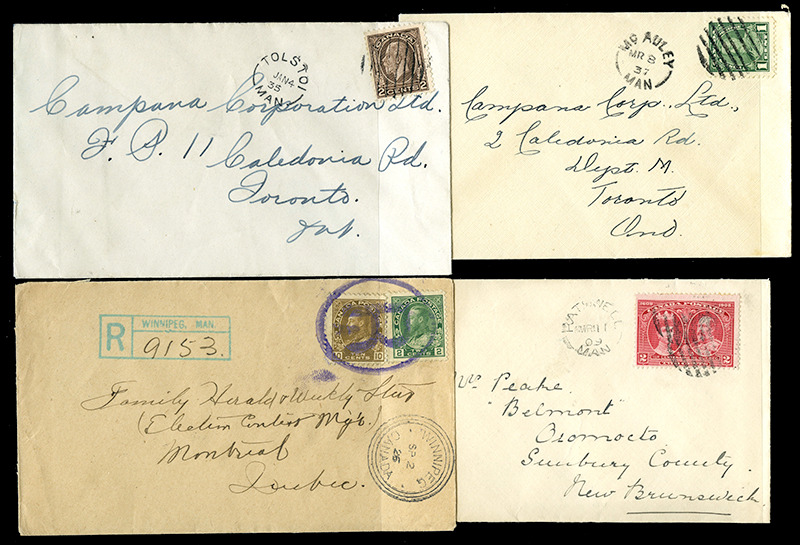 TOLSTOI
JAN 4
35
MAN
CANADA
2 CENTS 2
Campana Corporation Ltd.
F. S. 11 Caledonia Rd.
Toronto.
Ont.
MC AULEY
MR 8
37
MAN
1 1
Campana Corp., Ltd.,
2 Caledonia Rd.
Dept. M.
Toronto
Ont.
R
WINNIPEG, MAN.
9153.
CANADA POSTAGE
10 TEN CENTS 10
CANADA POSTAGE
2 CENTS 2
Family Herald & Weekly Star
(Election Contest Mgr.)
Montreal
Quebec.
WINNIPEG
SP 2
26
CANADA
MR 11
09
MAN
1608 CANADA POSTAGE 1908
2 2
Peake
"Belmont"
Oromocto
Sunbury County
New Brunswick